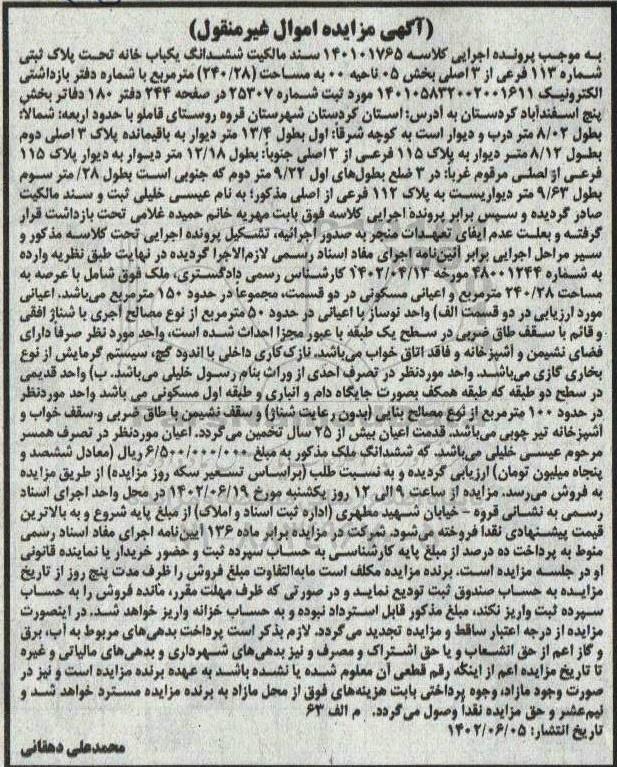 (آگهی مزایده اموال غیرمنقول)
به موجب پرونده اجرایی کلاسه ۱۴۰۱۰۱۷۶۵ سند مالکیت ششدانگ یکباب خانه تحت پلاک ثبتی
شماره ۱۱۳ فرعی از ۳ اصلی بخش ۰۵ ناحیه ۰۰ به مساحت (۲۴۰/۲۸) مترمربع با شماره دفتر بازداشتی
الکترونیک ۱۴۰۱۰۵۸۳۲۰۰۲۰۰۱۶۱۱ مورد ثبت شماره ۲۵۳۰۷ در صفحه ۲۴۴ دفتر ۱۸۰ دفاتر بخش
پنج اسفندآباد کردستان به آدرس: استان کردستان شهرستان قروه روستای قاملو با حدود اربعه: شمالا:
بطول ۸/۰۲ متر درب و دیوار است به کوچه شرقا: اول بطول ۱۳/۴ متر دیوار به باقیمانده پلاک ۳ اصلی دوم
بطول ۸/۱۲ متر دیوار به پلاک ۱۱۵ فرعی از ۳ اصلی جنوبا: بطول ۱۲/۱۸ متر دیوار به دیوار پلاک ۱۱۵
فرعی از اصلی مرقوم غربا: در ۳ ضلع بطول‌های اول ۹/۲۲ متر دوم که جنوبی است بطول ۲۸/ متر سوم
بطول ۹/۶۳ متر دیواریست به پلاک ۱۱۲ فرعی از اصلی مذکور؛ به نام عیسی خلیلی ثبت و سند مالکیت
صادر گردیده و سپس برابر پرونده اجرایی کلاسه فوق بابت مهریه خانم حمیده غلامی تحت بازداشت قرار
گرفته و بعلت عدم ایفای تعهدات منجر به صدور اجرائیه، تشکیل پرونده اجرایی تحت کلاسه مذکور و
سیر مراحل اجرایی برابر آئین‌نامه اجرای مفاد اسناد رسمی لازم‌الاجرا گردیده در نهایت طبق نظریه وارده
به شماره ۴۸۰۰۱۲۴۴ مورخه ۱۴۰۲/۰۴/۱۳ کارشناس رسمی دادگستری، ملک فوق شامل با عرصه به
مساحت ۲۴۰/۲۸ مترمربع و اعیانی مسکونی در دو قسمت، مجموعا در حدود ۱۵۰ مترمربع می‌باشد. اعیانی
مورد ارزیابی در دو قسمت الف) واحد نوساز با اعیانی در حدود ۵۰ مترمربع از نوع مصالح آجری با شناژ افقی
و قائم با سقف طاق ضربی در سطح یک طبقه با عبور مجزا احداث شده است، واحد مورد نظر صرفا دارای
فضای نشیمن و آشپزخانه و فاقد اتاق خواب می‌باشد. نازک‌کاری داخلی با اندود گچ، سیستم گرمایش از نوع
بخاری گازی می‌باشد. واحد موردنظر در تصرف احدی از وراث بنام رسول خلیلی می‌باشد. ب) واحد قدیمی
در سطح دو طبقه که طبقه همکف بصورت جایگاه دام و انباری و طبقه اول مسکونی می باشد واحد موردنظر
در حدود ۱۰۰ مترمربع از نوع مصالح بنایی (بدون رعایت شناژ) و سقف نشیمن با طاق ضربی و سقف خواب و
آشپزخانه تیر چوبی می‌باشد. قدمت اعیان بیش از ۲۵ سال تخمین می‌گردد. اعیان موردنظر در تصرف همسر
مرحوم عیسی خلیلی می‌باشد. که ششدانگ ملک مذکور به مبلغ ۶/۵۰۰/۰۰۰/۰۰۰ ریال (معادل ششصد و
پنجاه میلیون تومان) ارزیابی گردیده و به نسبت طلب (براساس تسعیر سکه روز مزایده) از طریق مزایده
به فروش می‌رسد. مزایده از ساعت ۹ الی ۱۲ روز یکشنبه مورخ ۱۴۰۲/۰۶/۱۹ در محل واحد اجرای اسناد
رسمی به نشانی قروه - خیابان شهید مطهری (اداره ثبت اسناد و املاک) از مبلغ پایه شروع و به بالاترین
قیمت پیشنهادی نقدا فروخته می‌شود. شرکت در مزایده برابر ماده ۱۳۶ آیین‌نامه اجرای مفاد اسناد رسمی
منوط به پرداخت ده درصد از مبلغ پایه کارشناسی به حساب سپرده ثبت و حضور خریدار یا نماینده قانونی
او در جلسه مزایده است، برنده مزایده مکلف است مابه‌التفاوت مبلغ فروش را ظرف مدت پنج روز از تاریخ
مزایده به حساب صندوق ثبت تودیع نماید و در صورتی که ظرف مهلت مقرر، مانده فروش را به حساب
سپرده ثبت واریز نکند، مبلغ مذکور قابل استرداد نبوده و به حساب خزانه واریز خواهد شد. در اینصورت
مزایده از درجه اعتبار ساقط و مزایده تجدید می‌گردد. لازم بذکر است پرداخت بدهی‌های مربوط به آب، برق
و گاز اعم از حق انشعاب و یا حق اشتراک و مصرف و نیز بدهی‌های شهرداری و بدهی‌های مالیاتی و غیره
تا تاریخ مزایده اعم از اینکه رقم قطعی آن معلوم شده یا نشده باشد به عهده برنده مزایده است و نیز در
صورت وجود مازاد، وجوه پرداختی بابت هزینه‌های فوق از محل مازاد به برنده مزایده مسترد خواهد شد و
نیم‌عشر و حق مزایده نقدا وصول می‌گردد. م الف ۶۳
تاریخ انتشار: ۱۴۰۲/۰۶/۰۵
محمدعلی دهقانی